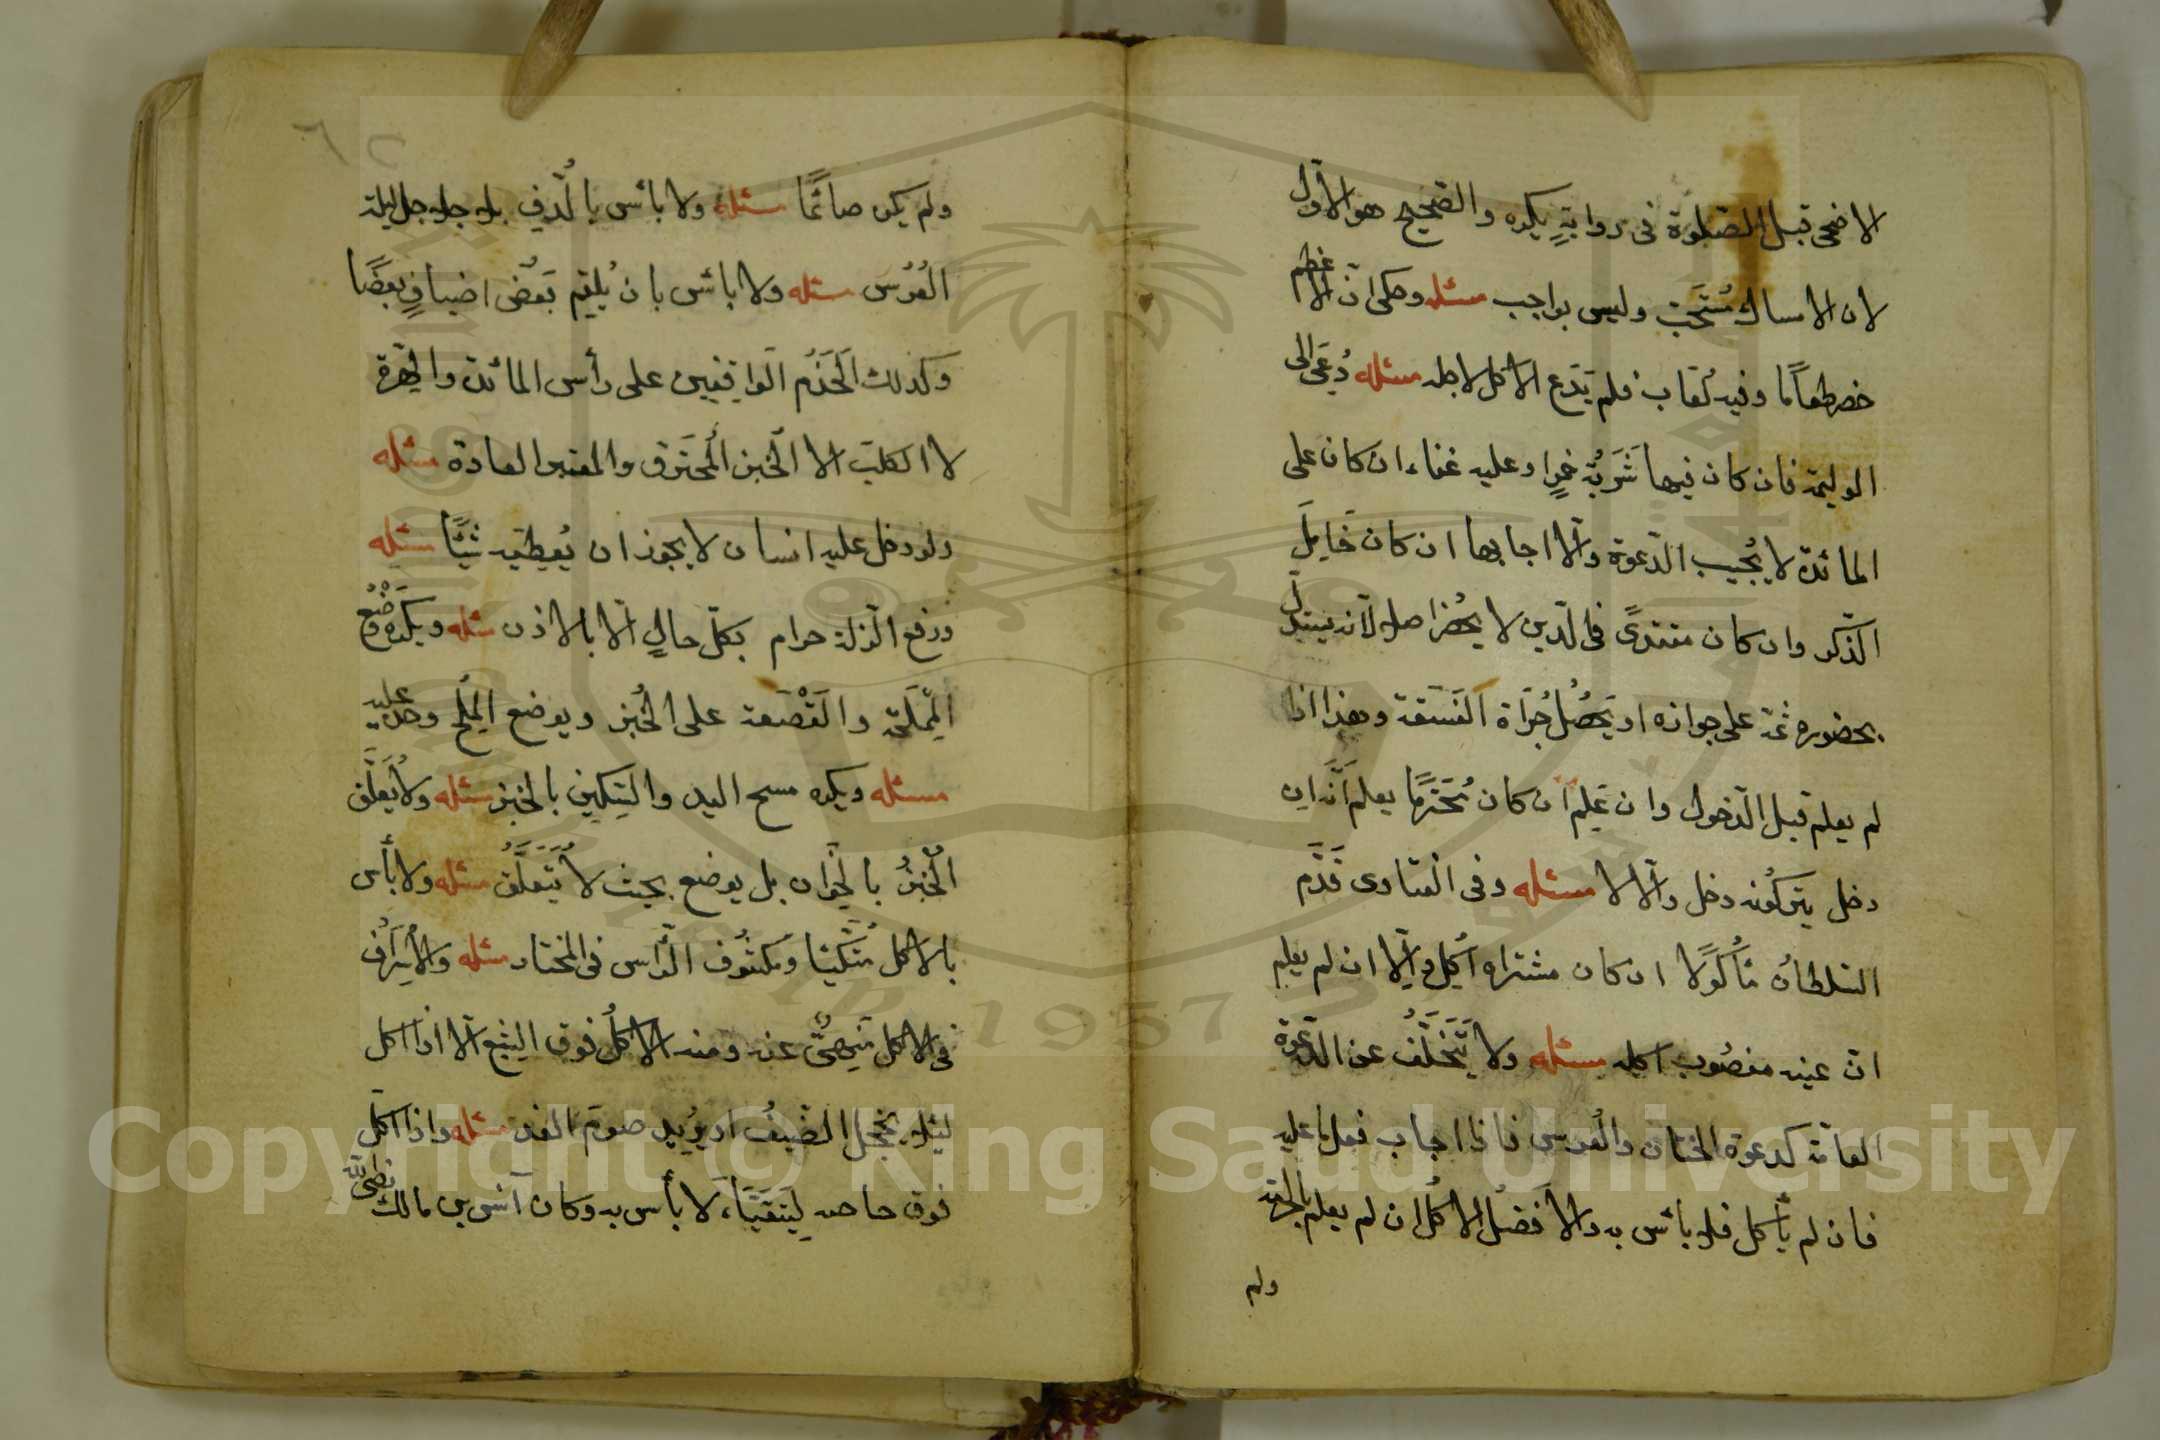 الاضحى قبل الصلوة فى رواية يكره والصحيح هو الاول
لان الامساك مستحب وليس بواجب مسئله وحكى ان الامام الاعظم
حضر طعامًا وفيه لعاب فلم يدع الاكل لاجله مسئله دُعى الى
الوليمة فان كان فيها شَرَبَة خمرٍ او عليه غناء ان كان على
المائدة لا يُجيب الدّعوة والّا اجابها ان كان خَامِلَ
الذّكر وان كان مقتدىً فى الدّين لا يحضر اصلا لانه يستدل
بحضوره ثمة على جوازه او يَحصُل جُرأة الفَسَقة وهذا اذا
لم يعلم قبل الدّخول وان عَلِم ان كان مُحترمًا يعلم انّه ان
دخل يتركُونه دخل والّا لا مسئله وفى الفتاوى قَدَّم
السّلطان مأكُولًا ان كان مشتراه اُكِل والّا ان لم يعلم
ان عينه مغصُوب اكله مسئله ولا يَتَخَلّفُ عن الدّعوة
العامّة كدعوة الختان والعُرس فاذا اجاب فعل ما عليه
فان لم يأكل فلا بائس به والافضلُ الاكُل ان لم يعلم بالحرمة
ولم
٦٢
ولم يكن صائمًا مسئله ولا بائس بالدّف بلا جلاجل ليلة
العُرُس مسئله ولا بائس بان يُلقِم بَعْضُ اضيافٍ بعضًا
وكذلك الخَدَم الواقِفِين على رأس المائدة والهِرّة
لا الكلبَ الا الخبز المُحتَرق والمعتبر العادة مسئله
ولو دخل عليه انسان لا يجوز ان يُعطِيه شيئًا مسئله
ورفع الزلة حرام بكلّ حالٍ الّا بالاذن مسئله ويكره وَضْعُ
المِملَحة والقَصْعة على الخُبز ويوضع المِلْح وحده عليه
مسئله ويكره مسح اليد والسِّكّين بالخبز مسئله ولا يُعَلّق
الخُبزُ بالخِوان بل يوضع بحيث لا يَتَعَلَّقُ مسئله ولا بأس
بالاكل مُتّكِئا ومكشُوف الرّأس فى المختار مسئله والاسراف
فى الاكل مَنهِىٌّ عنه ومنه الاكلُ فوق الشِّبع الّا اذا اكل
لئلا يخجل الضّيفُ او يُرِيد صومَ الغد مسئله واذا اكَل
فوق حاجته لِيَتَقَيّأ، لا بأس به وكان انس بن مالك رضى الله
Copyright © King Saud University
1957